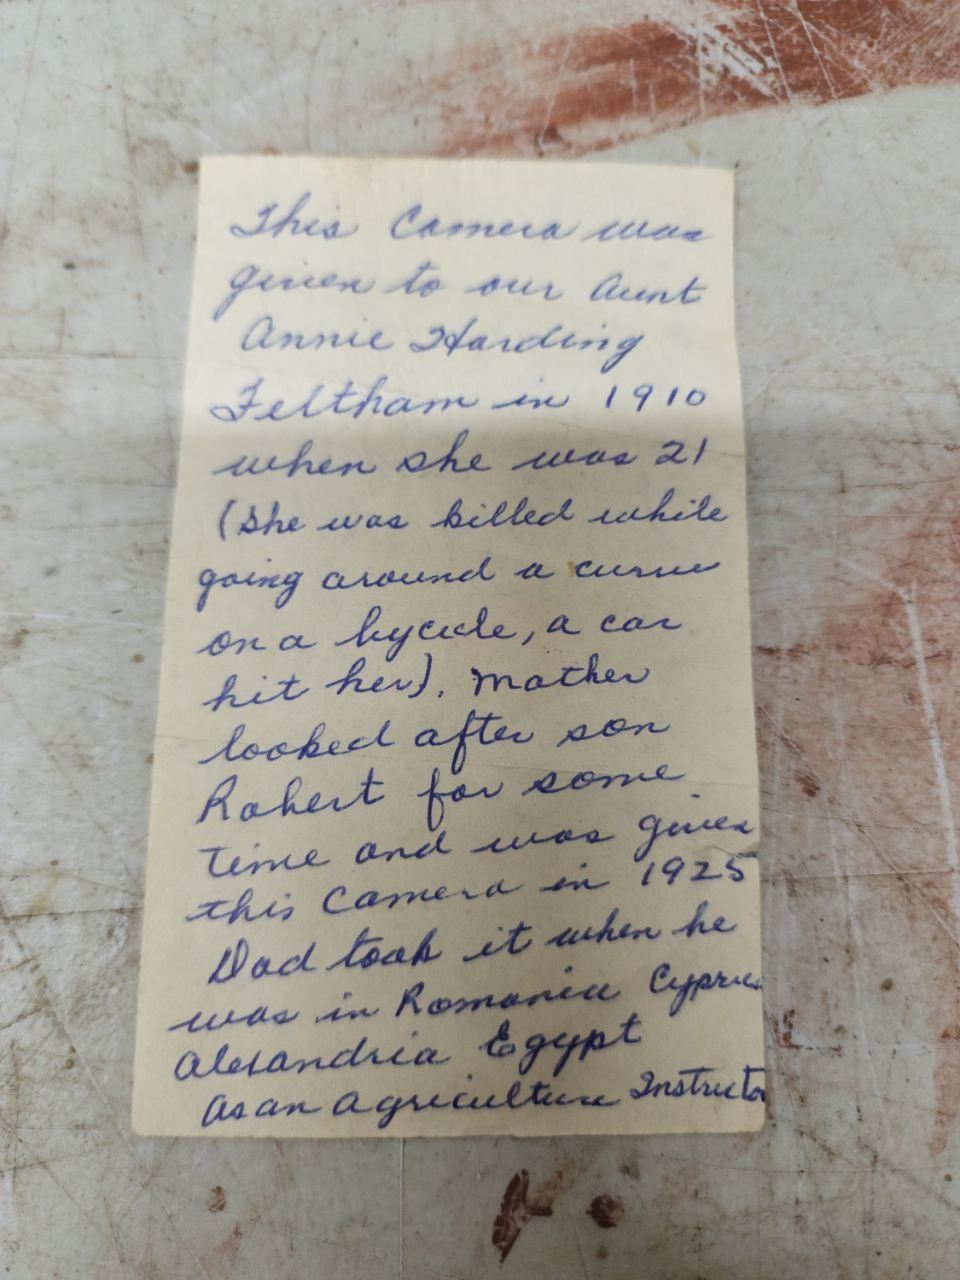 This Camera was
given to our Aunt
Annie Harding
Feltham in 1910
when she was 21
(she was killed while
going around a curve
on a bycicle, a car
hit her). Mother
looked after son
Robert for some
time and was given
this Camera in 1925
Dad took it when he
was in Romania Cyprus
Alexandria Egypt
as an Agriculture Instructor